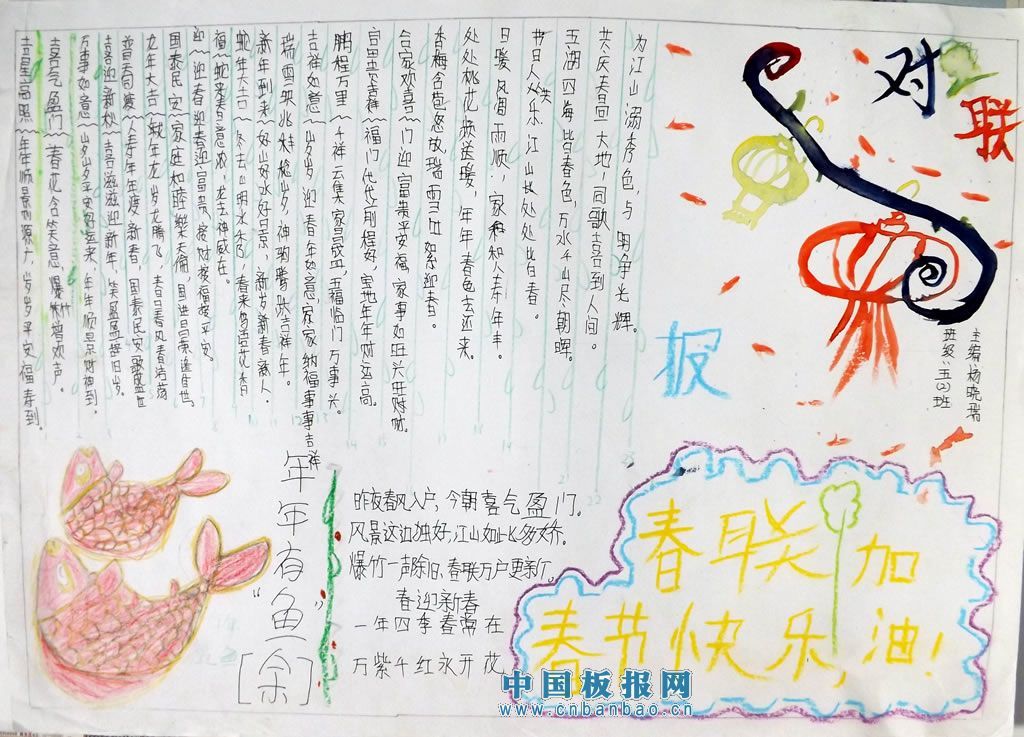 对联
报
主编:杨晓瑞
班级:五(2)班
为江山添秀色,与日月争光辉。
共庆春回大地,同歌喜到人间。
五湖四海皆春色,万水千山尽朝晖。
节日人人乐,江山处处皆春。
日暖风和雨顺,家和人寿年丰。
处处桃花频送暖,年年春色去还来。
香梅含苞怒放,瑞雪兆丰迎春。
合家欢喜 门迎富贵平安福,家事如旺兴旺财。
富贵吉祥 福门代代前程好,宝地年年财运高。
鹏程万里 千祥云集家昌盛,五福临门万事兴。
吉祥如意 岁岁迎春年年如意,家家纳福事事吉祥
瑞雪兆 辞旧岁,神驹腾跃吉祥年。
新年到来 好山好水好风景,新岁新春新人。
蛇年大吉 冬去山明水秀,春来鸟语花香
福 蛇来春意浓,龙去神威在。
迎春迎春迎富贵,接财接福接平安。
国泰民安
龙年大吉
普天同庆 人寿年年渡新春,国泰民安歌盛世
喜迎新秋 喜滋滋迎新年,笑盈盈辞旧岁。
万事如意 岁岁平安好运来,年年顺景财神到。
喜气盈门 春花含笑意,爆竹增欢声。
吉星高照 年年顺景财源广,岁岁平安福寿到。
年年有“鱼”
[余]
昨夜春风入户,今朝喜气盈门。
风景这边独好,江山如此多娇。
爆竹一声除旧,春联万户更新。
春迎新春
一年四季春常在
万紫千红永开花
春联加
春节快乐,油!
中国板报网
www.cnbanbao.cn